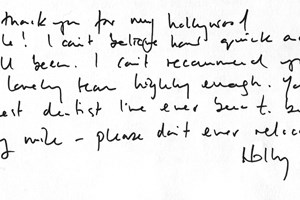 thank you for my hollywood
! I can't believe how quick a
been. I can't recommend y
lovely team highly enough. Yo
est dentist I've ever been t.
– please don't ever reloc
Holly